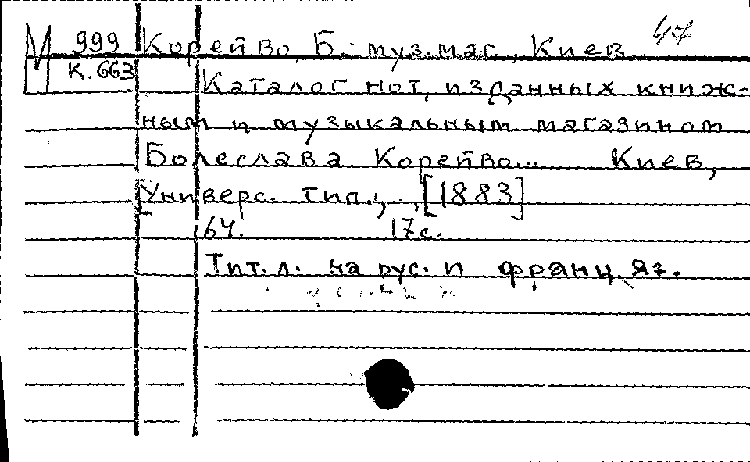 М 999 Корейво, Б. муз. маг., Киев 47
К.663 Каталог нот, изданных книж-
ным и музыкальным магазином
Болеслава Корейво... Киев,
Универс. тип., [1883]
64. 17с.
Тит. л. на рус. и франц. яз.